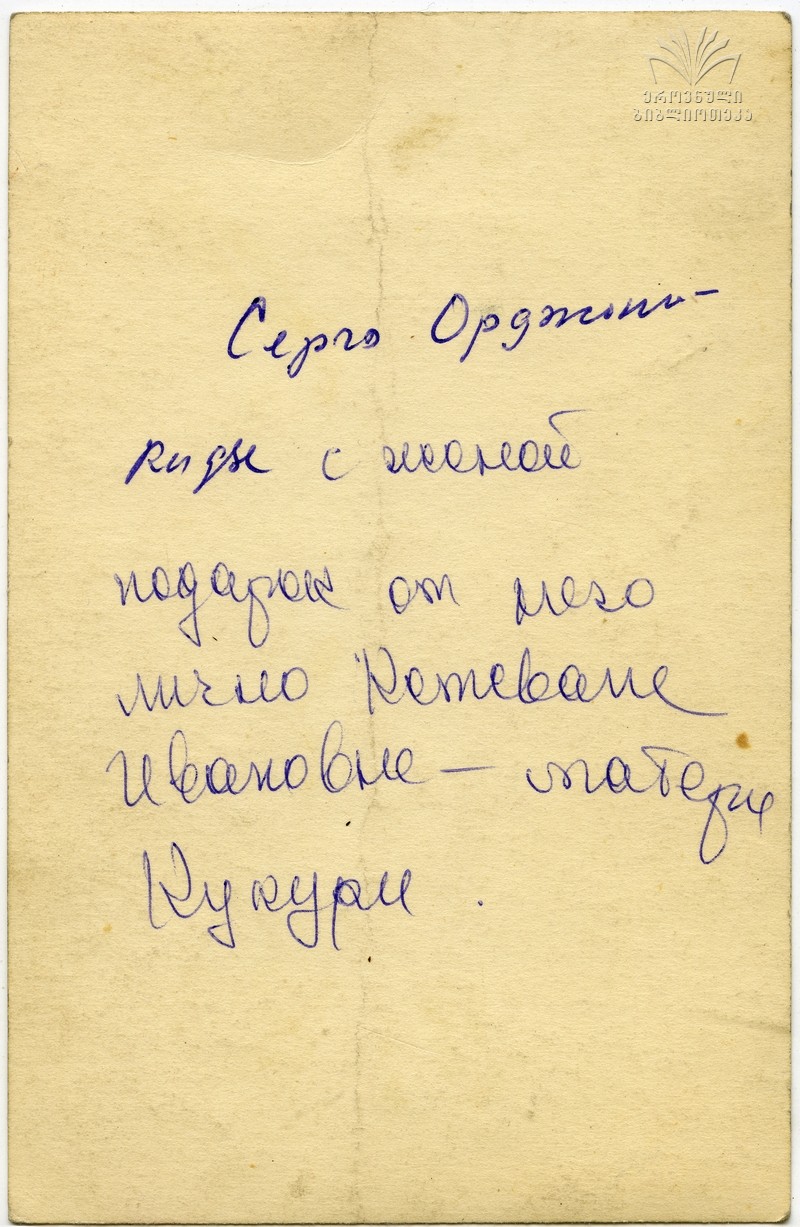 ეროვნული
ბიბლიოთეკა
Серго Орджони-
кидзе с женой
подарок от него
лично Кетеване
Ивановне — матери
Кукури.